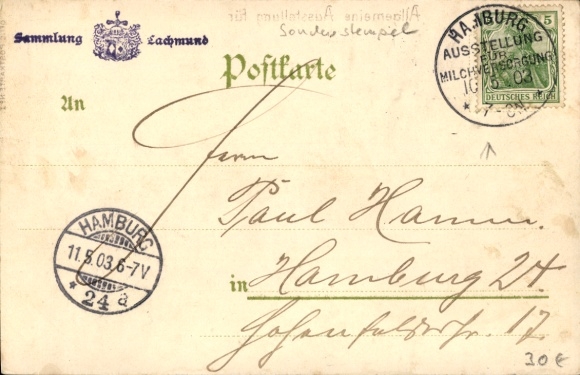 Allgemeine Ausstellung für
Sonderstempel
Sammlung Lachmund
HAMBURG
AUSSTELLUNG
FÜR
MILCHVERSORGUNG
10.5.03
* 7-8N *
5
DEUTSCHES REICH
Postkarte
An
Herrn
Paul Hamm.
in Hamburg 24.
Hohenfelderstr. 17.
HAMBURG
11.5.03.6-7V
* 24 a
30 €